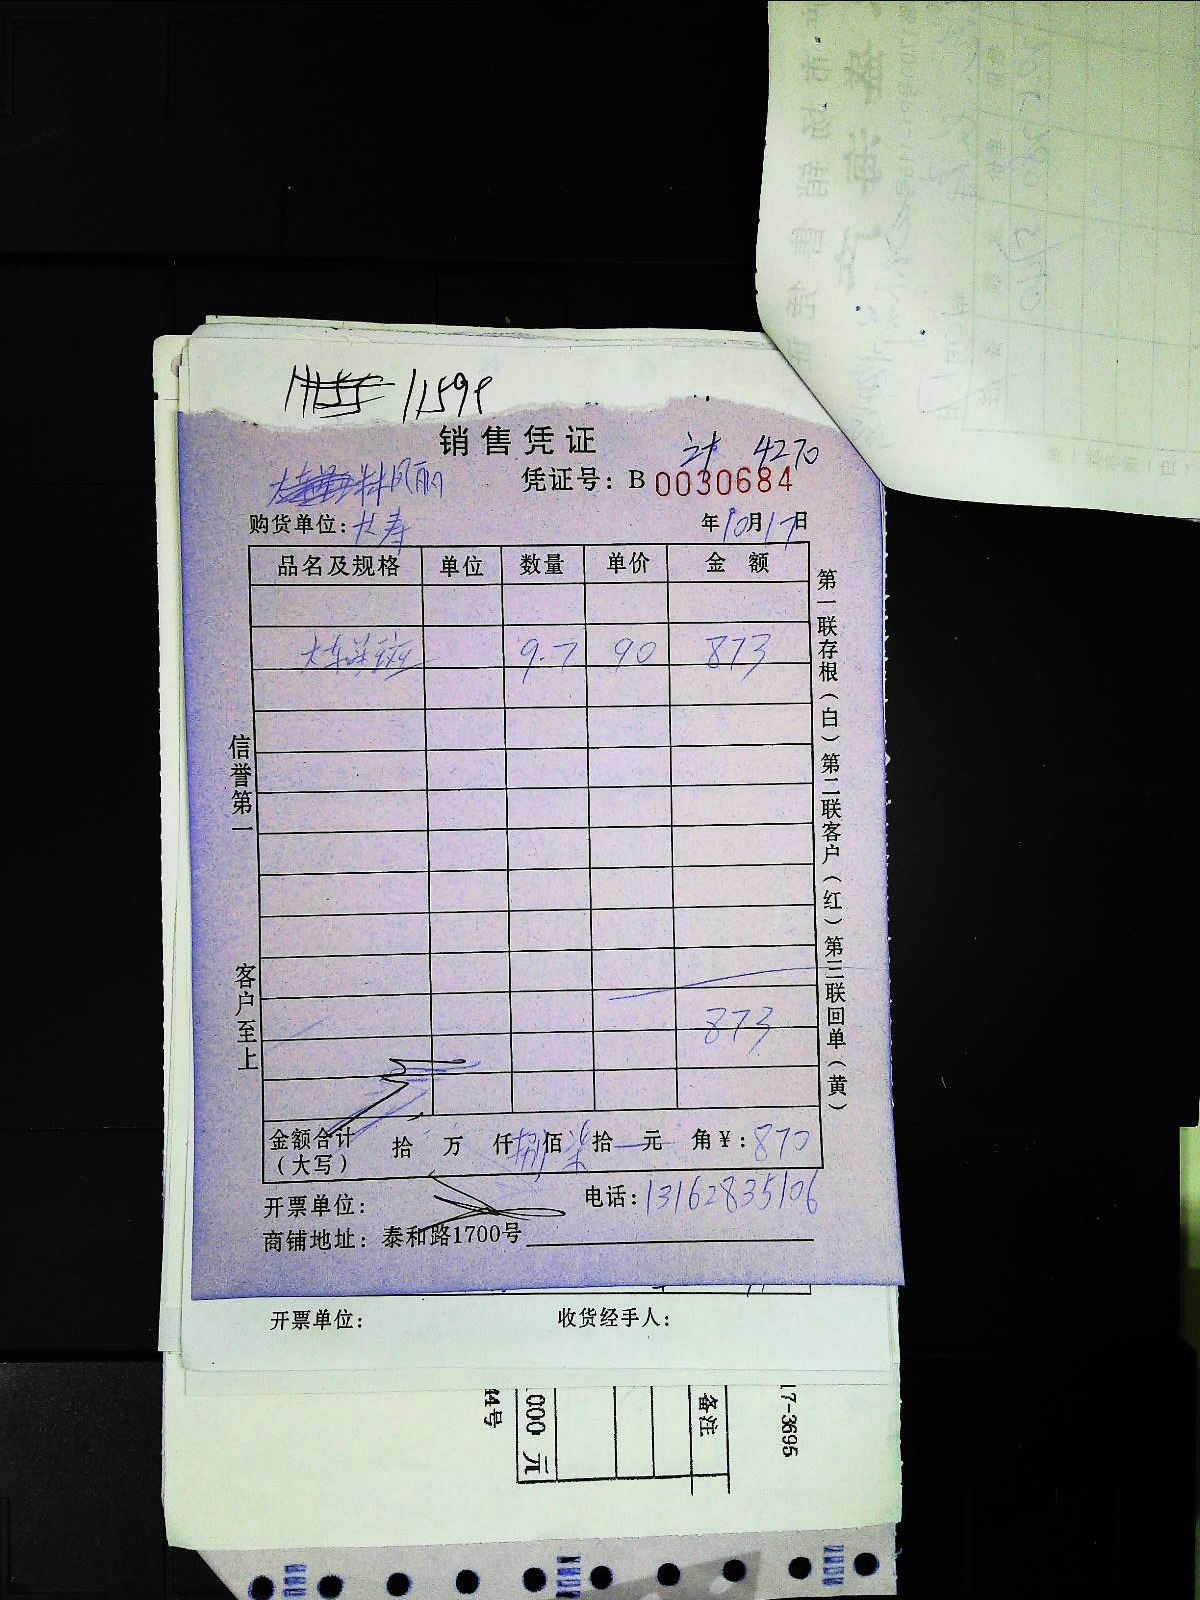 11598
销售凭证
计 4270
凭证号：B 0030684
购货单位：长寿
年10月17日
品名及规格 单位 数量 单价 金额
9.7 90 873
873
金额合计（大写） 拾 万 仟 捌佰 柒拾 元 角 ￥：870
开票单位： 电话：13162835106
商铺地址：泰和路1700号
信誉第一 客户至上
第一联存根（白）第二联客户（红）第三联回单（黄）
开票单位： 收货经手人：
备注
000 元
44号
17-3695